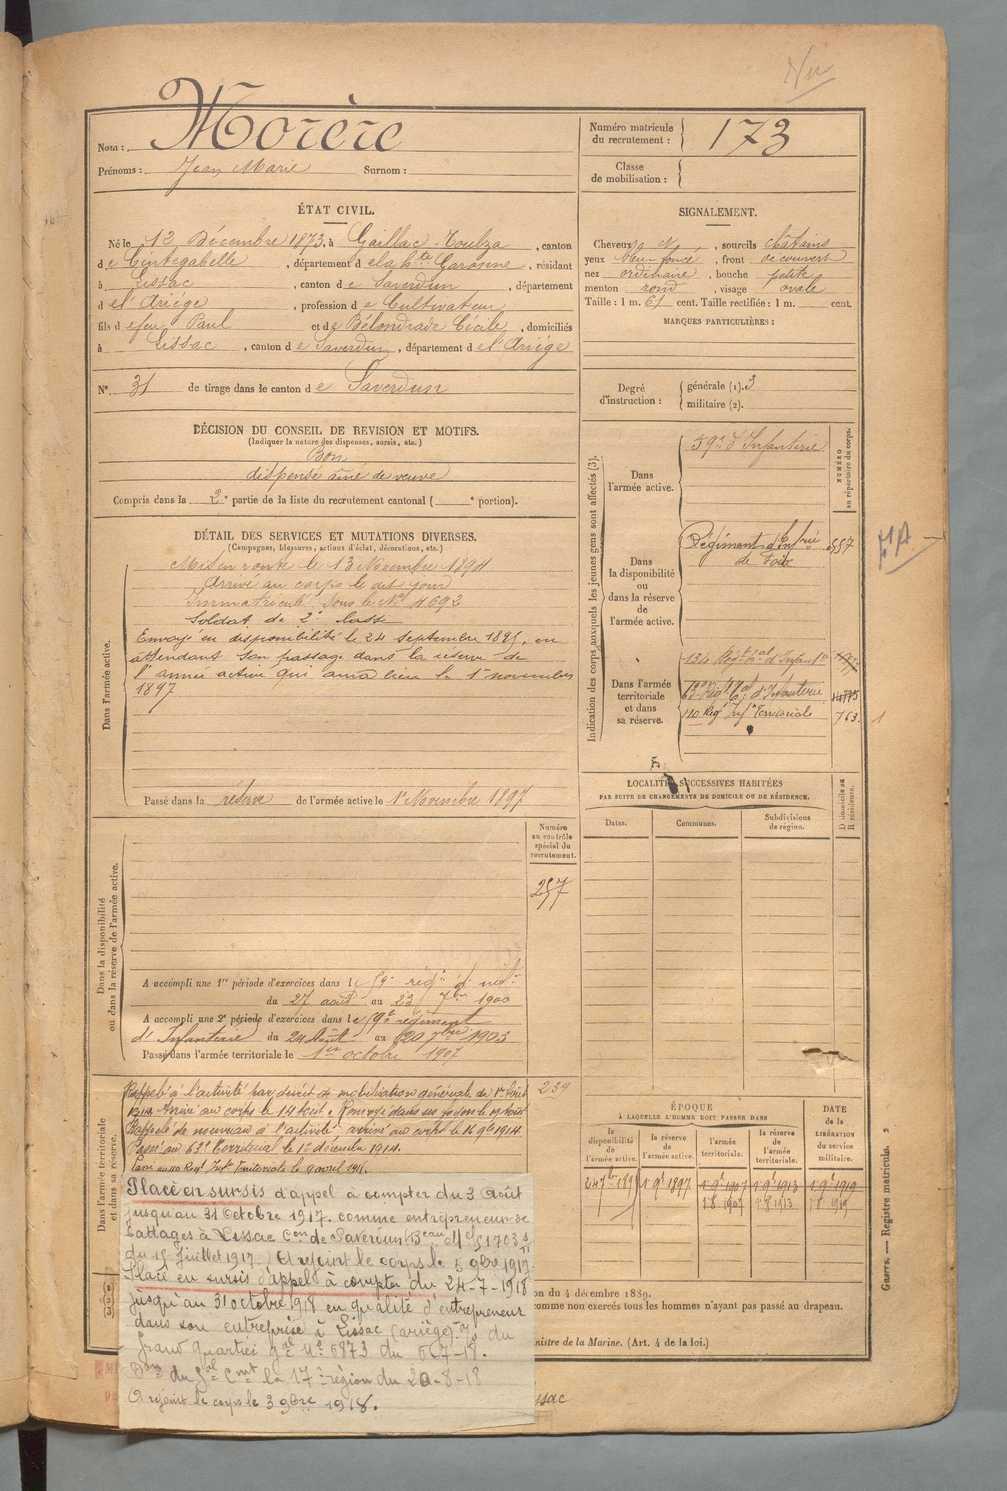 Nom : Morère
Prénoms : Jean Marie Surnom :
Numéro matricule du recrutement : 173
Classe de mobilisation :
ÉTAT CIVIL.
Né le 12 Décembre 1873, à Gaillac-Toulza, canton
de Cintegabelle, département de la hte Garonne, résidant
à Lissac, canton de Saverdun, département
de l'Ariége, profession de Cultivateur
fils de feu Paul et de Bélondrade Cécile, domiciliés
à Lissac, canton de Saverdun, département de l'Ariége
N° 31 de tirage dans le canton de Saverdun
SIGNALEMENT.
Cheveux N, sourcils châtains
yeux bleu foncé, front découvert
nez ordinaire, bouche petite
menton rond, visage ovale
Taille : 1 m. 61 cent. Taille rectifiée : 1 m. cent.
MARQUES PARTICULIÈRES :
Degré d'instruction : générale (1). 3
militaire (2).
DÉCISION DU CONSEIL DE REVISION ET MOTIFS.
(Indiquer la nature des dispenses, sursis, etc.)
Bon
dispensé aîné de veuve
Compris dans la 2e partie de la liste du recrutement cantonal ( e portion).
DÉTAIL DES SERVICES ET MUTATIONS DIVERSES.
(Campagnes, blessures, actions d'éclat, décorations, etc.)
Dans l'armée active.
Mis en route le 13 Novembre 1894
Arrivé au corps le dit jour
Immatriculé sous le N° 4692
Soldat de 2e classe
Envoyé en disponibilité le 24 septembre 1895, en
attendant son passage dans la réserve de
l'armée active qui aura lieu le 1er novembre
1897
Passé dans la réserve de l'armée active le 1er Novembre 1897
Indication des corps auxquels les jeunes gens sont affectés (3).
NUMÉRO au répertoire du corps.
Dans l'armée active.
59e d'Infanterie
Dans la disponibilité ou dans la réserve de l'armée active.
Régiment d'Infrie 557
de Foix
Dans l'armée territoriale et dans sa réserve.
134 Régt tal d'Infantie
63e Régt tal d'Infanterie
110 Regt Infie Territoriale 763
LOCALITÉS SUCCESSIVES HABITÉES
PAR SUITE DE CHANGEMENTS DE DOMICILE OU DE RÉSIDENCE.
Dates.
Communes.
Subdivisions de région.
D domicile ou R résidence.
Dans la disponibilité ou dans la réserve de l'armée active.
Numéro au contrôle spécial du recrutement.
257
A accompli une 1re période d'exercices dans le 59e régt d'inf.
du 27 août au 23 7bre 1900
A accompli une 2e période d'exercices dans le 59e régiment
d'Infanterie du 24 Août au 20 7bre 1903
Passé dans l'armée territoriale le 1er octobre 1907
Dans l'armée territoriale et dans sa réserve.
239
Rappelé à l'activité par décret de mobilisation générale du 1er Août
1914. Arrivé au corps le 14 Août. Renvoyé dans ses foyers le
Rappelé de nouveau à l'activité arrivé au corps le 16 9bre 1914
Passé au 63e Territorial le 1 décembre 1914.
Passé au 110 Regt Infie Territoriale le 2 avril 1916.
Placé en sursis d'appel à compter du 3 Août
jusqu'au 31 Octobre 1917, comme entrepreneur de
battages à Lissac Con de Saverdun
du 15 Juillet 1917. A rejoint le corps le 5 9bre 1917
Placé en sursis d'appel à compter du 24-7-1918
jusqu'au 31 octobre 1918 en qualité d'entrepreneur
dans son entreprise à Lissac (ariège) du
Grand quartier gal N° 6873 du
du Gal Cmt la 17e région du 20-8-18
A rejoint le corps le 3 9bre 1918.
ÉPOQUE
À LAQUELLE L'HOMME DOIT PASSER DANS
la disponibilité de l'armée active.
la réserve de l'armée active.
l'armée territoriale.
la réserve de l'armée territoriale.
DATE de la LIBÉRATION du service militaire.
24 7bre 1895 1 9e 1897 1 9e 1907 1 9e 1913 1 9e 1919
1 8 1907 1 8 1913 1 8 1919
on du 4 décembre 1889.
comme non exercés tous les hommes n'ayant pas passé au drapeau.
nistre de la Marine. (Art. 4 de la loi.)
ssac
Guerre. — Registre matricule.